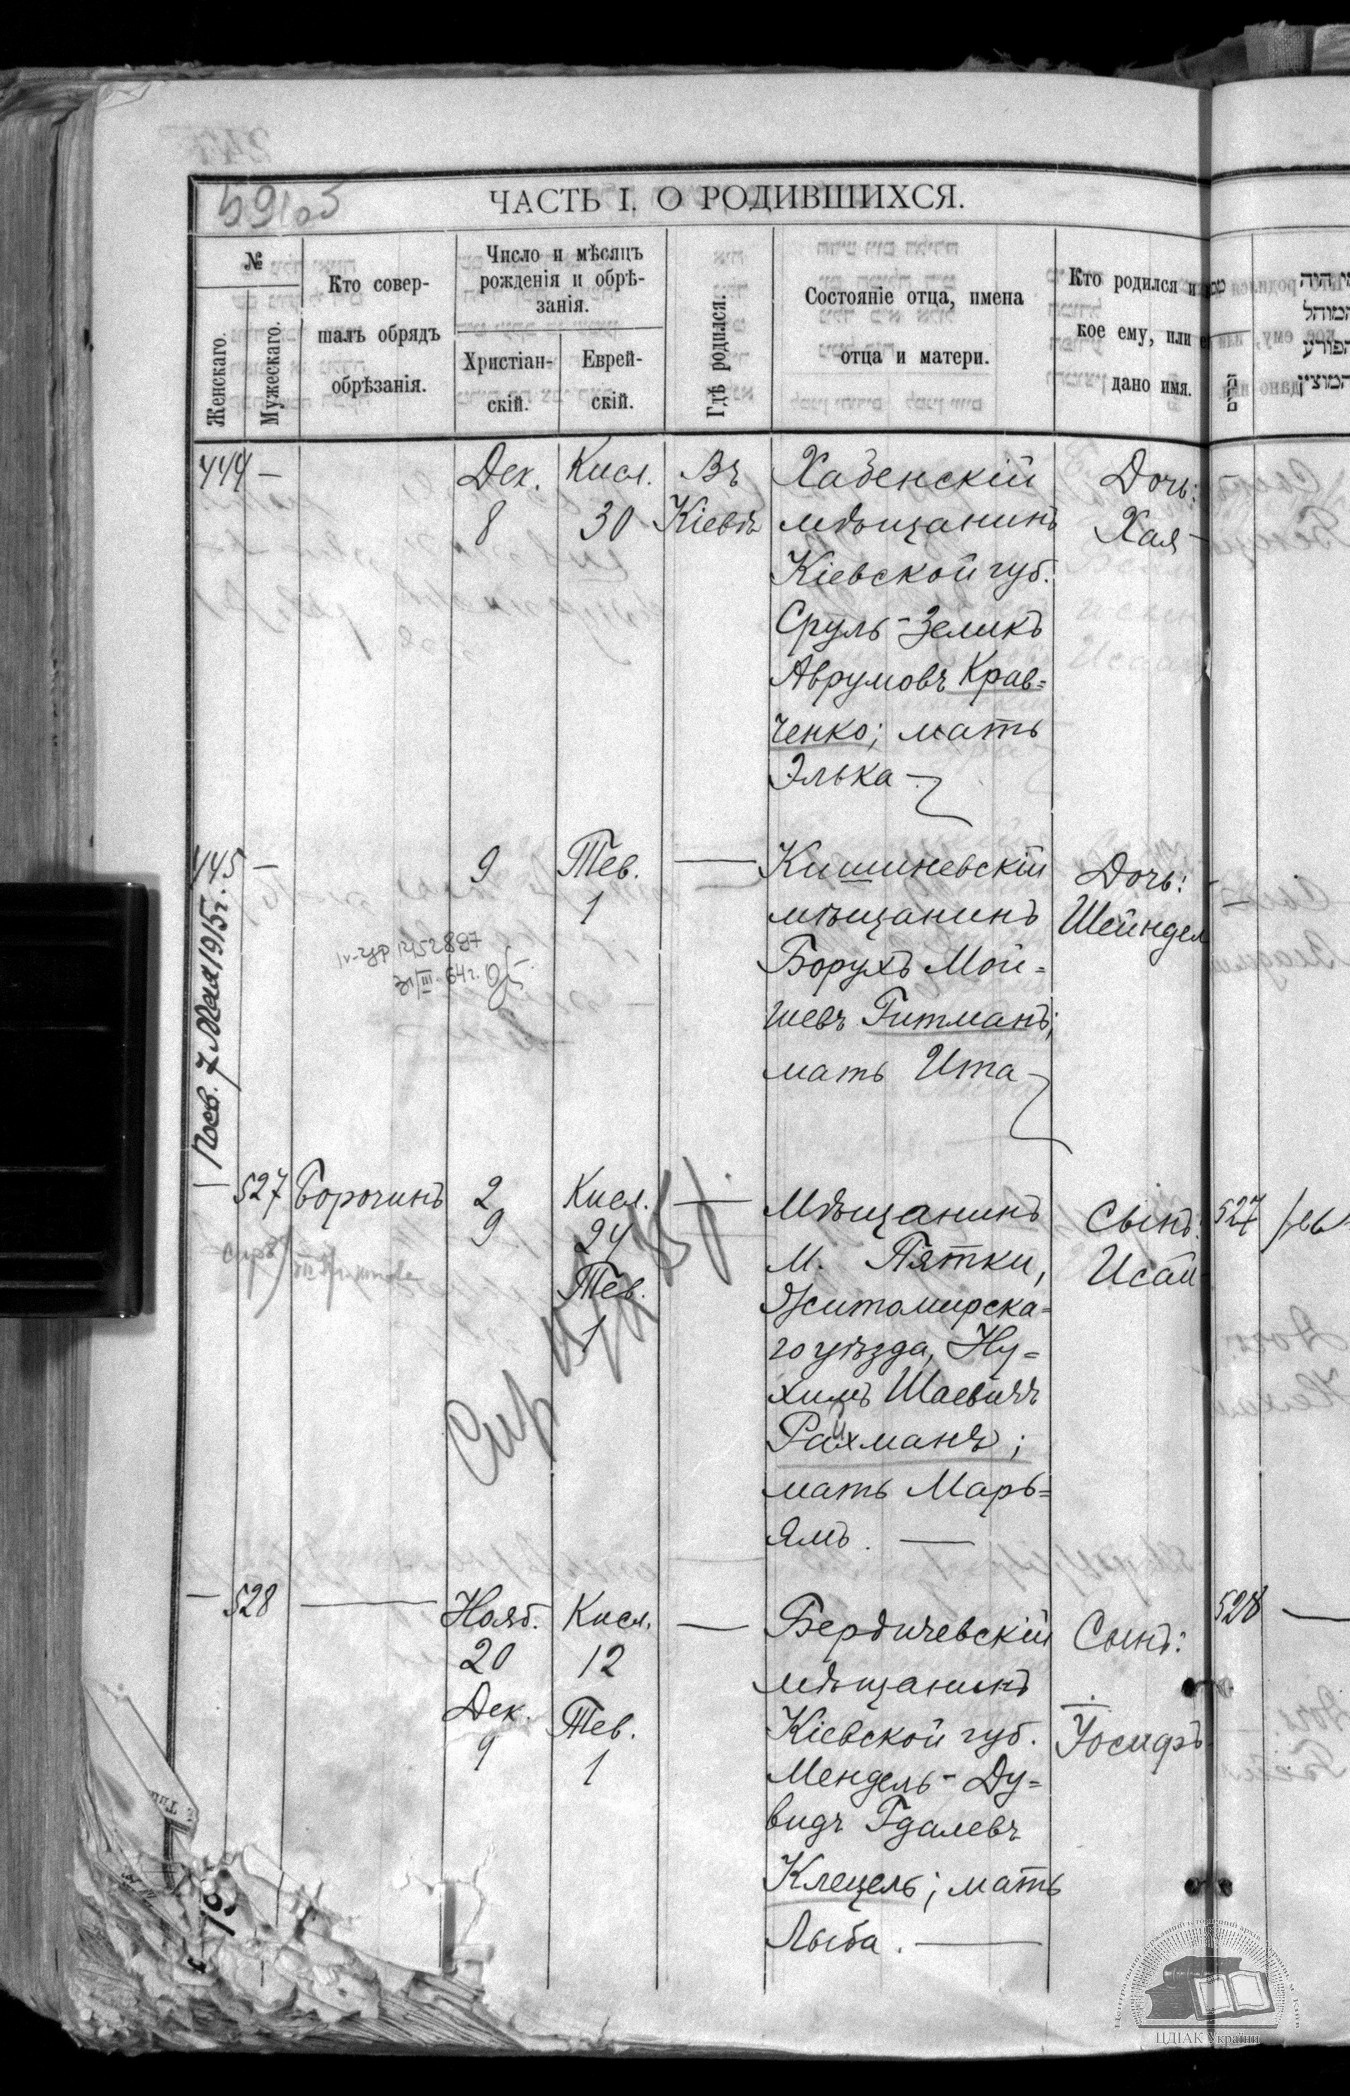 ЧАСТЬ I. О РОДИВШИХСЯ.
№
Женскаго.
Мужескаго.
Кто совер-
шалъ обрядъ
обрѣзанія.
Число и мѣсяцъ
рожденія и обрѣ-
занія.
Христіан-
скій.
Еврей-
скій.
Гдѣ родился.
Состояніе отца, имена
отца и матери.
Кто родился и
кое ему, или
дано имя.
444 —
Дек.
8
Кисл.
30
Въ
Кіевѣ
Хабенскій
мѣщанинъ
Кіевской губ.
Сруль-Зеликъ
Аврумовъ Крав=
ченко; мать
Элька —
Дочь:
Хая
445 —
9
Тев.
1
—
Кишиневскій
мѣщанинъ
Борухъ Мой=
шевъ Гитманъ;
мать Ита
Дочь:
Шейндел
7 Мая 1915 г.
1452887
31/III-64 г.
— 527
Борочинъ
2
9
Кисл.
24
Тев.
1
—
Мѣщанинъ
м. Пятки,
Житомирска=
го уѣзда, Ну=
химъ Шаевичъ
Райхманъ;
мать Марь=
ямъ. —
Сынъ:
Исай
527
— 528
—
Нояб.
20
Дек.
9
Кисл.
12
Тев.
1
—
Бердичевскій
мѣщанинъ
Кіевской губ.
Мендель-Ду=
видъ Гдалевъ
Клецель; мать
Лыба. —
Сынъ:
Іосифъ
528 —
ЦДІАК України